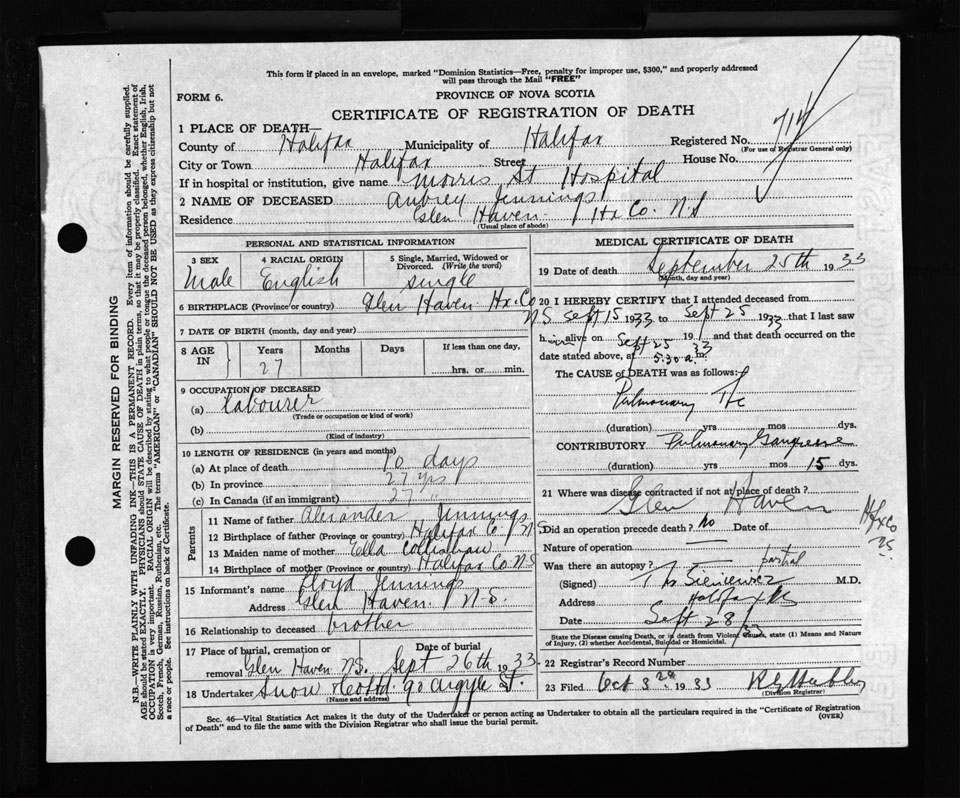 This form if placed in an envelope, marked "Dominion Statistics—Free, penalty for improper use, $300," and properly addressed
will pass through the Mail "FREE"
FORM 6.
PROVINCE OF NOVA SCOTIA
CERTIFICATE OF REGISTRATION OF DEATH
1 PLACE OF DEATH—
County of Halifax Municipality of Halifax Registered No. 714
(For use of Registrar General only)
City or Town Halifax Street House No.
If in hospital or institution, give name Morris St Hospital
2 NAME OF DECEASED Aubrey Jennings
Residence Glen Haven Hx Co. N.S
(Usual place of abode)
PERSONAL AND STATISTICAL INFORMATION
3 SEX 4 RACIAL ORIGIN 5 Single, Married, Widowed or Divorced. (Write the word)
Male English single
6 BIRTHPLACE (Province or country) Glen Haven Hx. Co N.S
7 DATE OF BIRTH (month, day and year)
8 AGE IN Years Months Days If less than one day,
27 hrs. or min.
9 OCCUPATION OF DECEASED
(a) labourer
(Trade or occupation or kind of work)
(b)
(Kind of industry)
10 LENGTH OF RESIDENCE (in years and months)
(a) At place of death 10 days
(b) In province 27 yrs
(c) In Canada (if an immigrant) 27 "
Parents
11 Name of father Alexander Jennings
12 Birthplace of father (Province or country) Halifax Co. N.S
13 Maiden name of mother Ella
14 Birthplace of mother (Province or country) Halifax Co. N.S
15 Informant's name Lloyd Jennings
Address Glen Haven. N.S.
16 Relationship to deceased brother
17 Place of burial, cremation or removal Date of burial
Glen Haven N.S. Sept 26th 1933
18 Undertaker Snow & Co Ltd. 90 Argyle St.
(Name and address)
MEDICAL CERTIFICATE OF DEATH
19 Date of death September 25th 1933
(Month, day and year)
20 I HEREBY CERTIFY that I attended deceased from
Sept 15 1933 to Sept 25 1933 that I last saw
him alive on Sept 25 1933 and that death occurred on the
date stated above, at 5.30 a m.
The CAUSE of DEATH was as follows:
Pulmonary Tbc
(duration) yrs mos dys.
CONTRIBUTORY Pulmonary Gangrene
(duration) yrs mos 15 dys.
21 Where was disease contracted if not at place of death?
Glen Haven Hfx Co NS.
Did an operation precede death? No Date of
Nature of operation —
Was there an autopsy? partial
(Signed) Sieniewicz M.D.
Address Halifax NS
Date Sept 28/33
State the Disease causing Death, or is death from Violent Causes, state (1) Means and Nature
of Injury, (2) whether Accidental, Suicidal or Homicidal.
22 Registrar's Record Number
23 Filed Oct 3rd 1933
(Division Registrar)
Sec. 46—Vital Statistics Act makes it the duty of the Undertaker or person acting as Undertaker to obtain all the particulars required in the "Certificate of Registration
of Death" and to file the same with the Division Registrar who shall issue the burial permit.
(OVER)
MARGIN RESERVED FOR BINDING
N.B.—WRITE PLAINLY WITH UNFADING INK—THIS IS A PERMANENT RECORD. Every item of information should be carefully supplied.
AGE should be stated EXACTLY. PHYSICIANS should STATE CAUSE OF DEATH in plain terms, so that it may be properly classified. Exact statement of
OCCUPATION is very important. RACIAL ORIGIN will be described by stating to what people or tongue the deceased person belonged, whether English, Irish,
Scotch, French, German, Russian, Ruthenian, etc. The terms "AMERICAN" or "CANADIAN" SHOULD NOT BE USED as they express citizenship but not
a race or people. See instructions on back of Certificate.